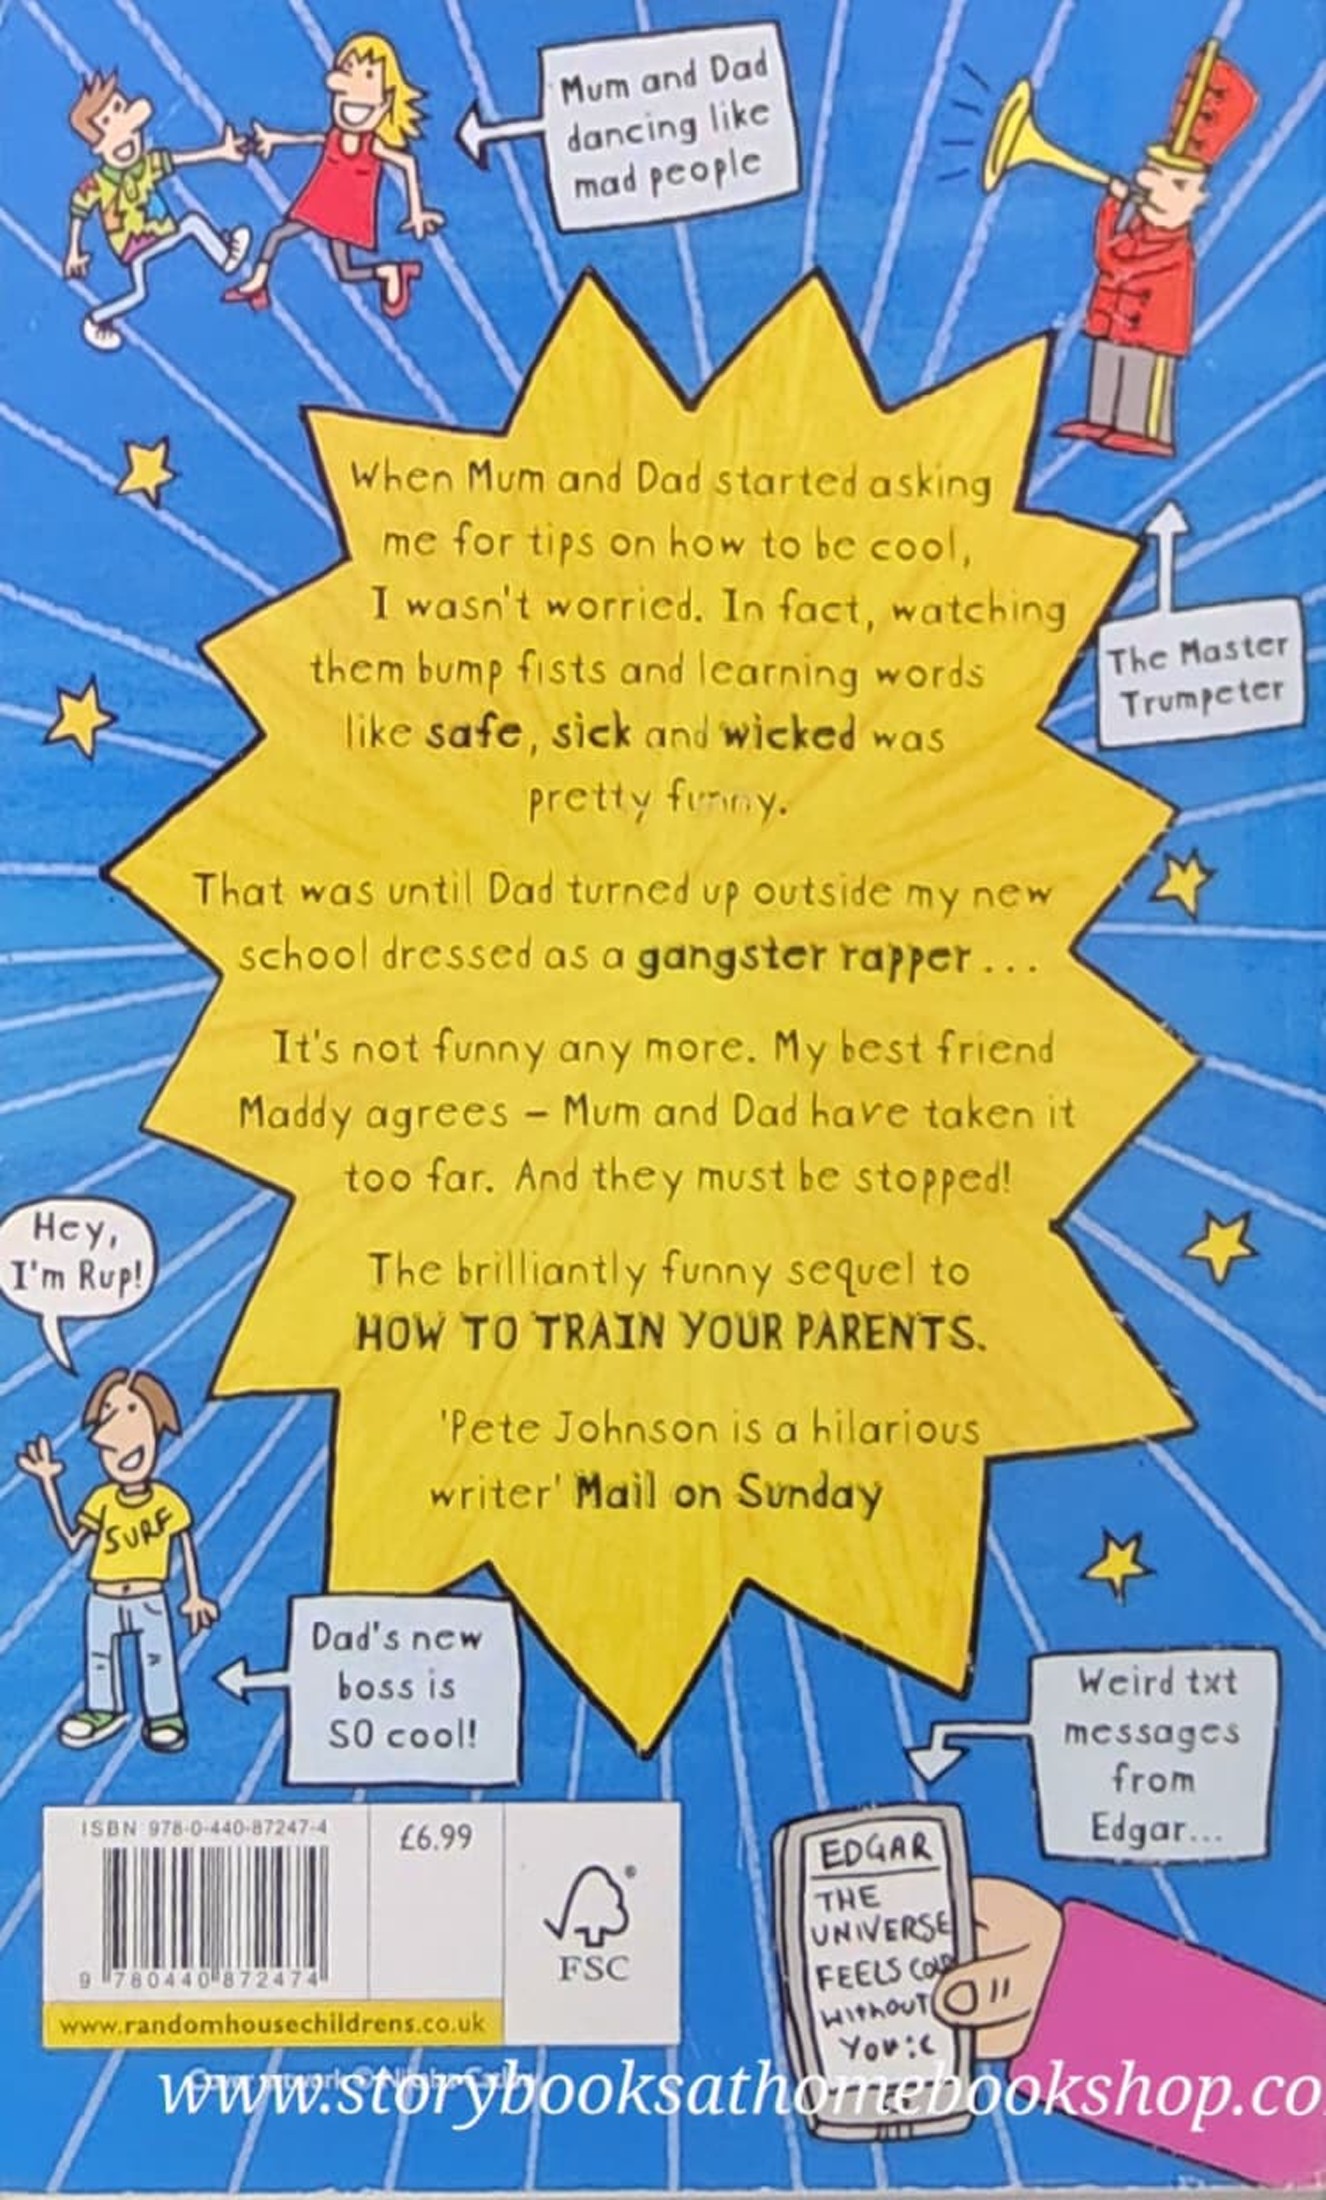 Mum and Dad
dancing like
mad people
When Mum and Dad started asking
me for tips on how to be cool,
I wasn't worried. In fact, watching
them bump fists and learning words
like safe, sick and wicked was
pretty funny.
The Master
Trumpeter
That was until Dad turned up outside my new
school dressed as a gangster rapper...
It's not funny any more. My best friend
Maddy agrees – Mum and Dad have taken it
too far. And they must be stopped!
Hey,
I'm Rup!
The brilliantly funny sequel to
HOW TO TRAIN YOUR PARENTS.
'Pete Johnson is a hilarious
writer' Mail on Sunday
SURF
Dad's new
boss is
SO cool!
Weird txt
messages
from
Edgar...
ISBN 978-0-440-87247-4
£6.99
9 780440 872474
FSC
www.randomhousechildrens.co.uk
EDGAR
THE
UNIVERSE
FEELS COLD
WITHOUT
YOU :(
Cover artwork ©
www.storybooksathomebookshop.co